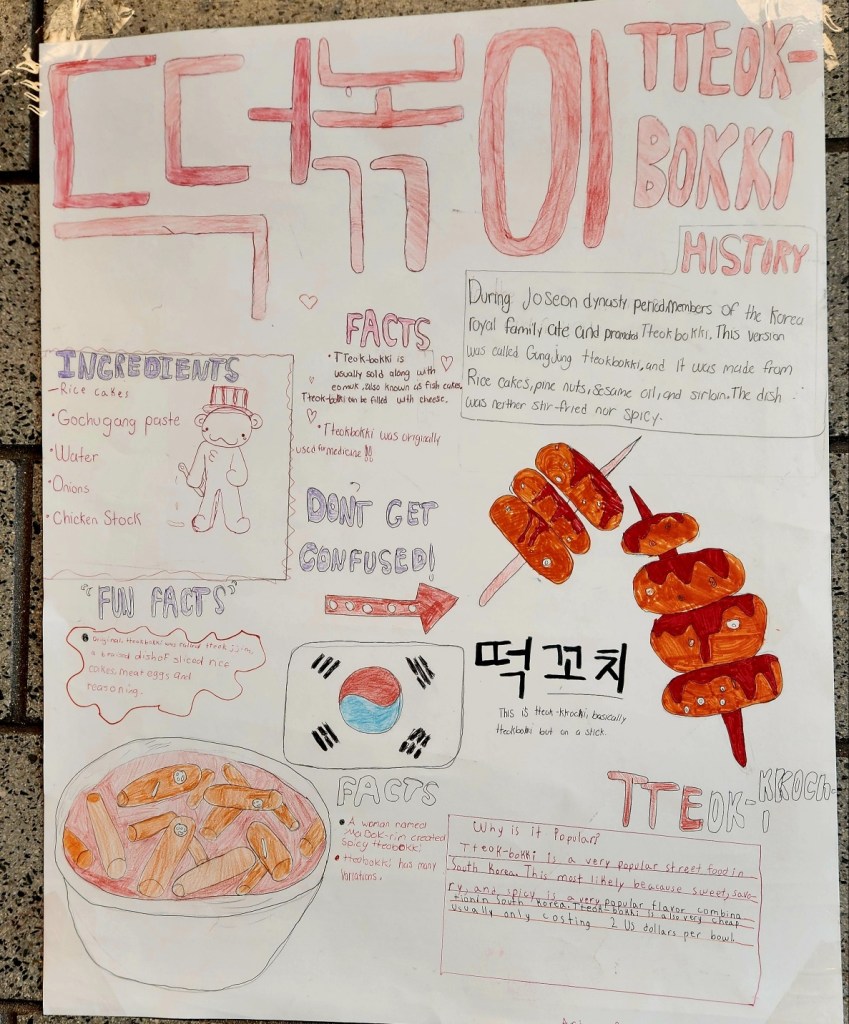 떡볶이
TTEOK-
BOKKI
HISTORY
During Joseon dynasty period Members of the Korea
royal family ate and promoted Tteokbokki. This version
was called Gungjung tteokbokki, and it was made from
Rice cakes, pine nuts, Sesame oil, and sirloin. The dish
was neither stir-fried nor spicy.
FACTS
• TTeok-bokki is
usually sold along with
eomuk, also known as fish cakes,
Tteok-bokki can be filled with cheese.
• Tteokbokki was originally
used for medicine !!
INGREDIENTS
- Rice cakes
• Gochugang paste
• Water
• Onions
• Chicken Stock
DON'T GET
CONFUSED!
"FUN FACTS"
Original tteokbokki was called tteok jjim,
a braised dish of sliced rice
cakes, meat eggs and
reasoning.
떡꼬치
THIS IS tteok-kkochi, basically
tteokbokki but on a stick.
TTEOK-KKOCH-
I
FACTS
• A woman named
Ma Bok-rim created
Spicy tteobokki
• tteobokki has many
variations.
Why is it Popular?
Tteok-bokki is a very popular street food in
South Korea. This most likely beacause sweet, savo-
ry, and spicy is a very popular flavor combina
tionin South Korea. Tteok-bokki is also very cheap
usually only costing 2 US dollars per bowl.